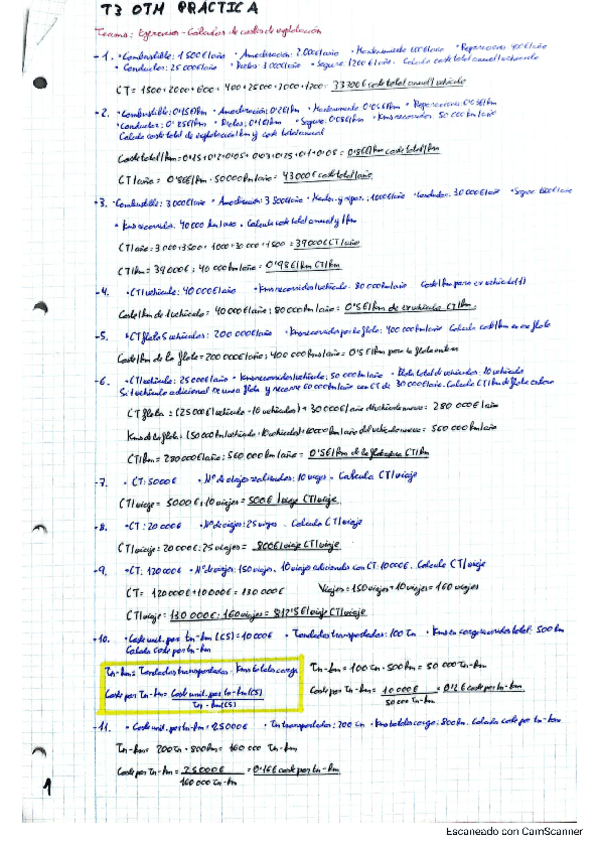 T3 OTM PRÁCTICA
Teams: Ejercicios - Cálculos de costes de explotación
-1. • Combustible: 1500€/año • Amortización: 2000€/año • Mantenimiento 600€/año • Reparaciones 400€/año
• Conductor: 25000€/año • Peajes: 3000€/año • Seguro: 1200€/año. Calcula coste total anual/vehículo
CT = 1500 + 2000 + 600 + 400 + 25000 + + 1200 = 33700€ coste total anual/vehículo
-2. • Combustible: 0'15€/km • Amortización: 0'2€/km • Mantenimiento: 0'05€/km • Reparaciones: 0'03€/km
• Conductor: 0'25€/km • Peajes: 0'1€/km • Seguro: 0'08€/km • Kms recorridos: 50 000 km/año
Calcula coste total de explotación/km y coste total anual
Coste total/km = 0'15 + 0'2 + 0'05 + 0'03 + 0'25 + 0'1 + = 0'86€/km coste total/km
CT/año = 0'86€/km · 50000 km/año = 43000€ coste total/año
-3. • Combustible: 3000€/año • Amortización: 3500€/año • Manten. y repar.: 1000€/año • Conductor: 30000€/año • Seguro 1500€/año
• Kms recorridos: 40000 km/año • Calcula coste total anual y/km
CT/año: 3000 + 3500 + 1000 + 30000 + 1500 = 39000€ CT/año
CT/km = 39000€ : 40 000 km/año = 0'98€/km CT/km
-4. • CT/vehículo: 40000€/año • Kms recorridos/vehículo: 80000 km/año Coste/km para vehículo
Coste/km de 1 vehículo = 40000€/año : 80000 km/año = 0'5€/km de vehículo CT/km.
-5. • CT flota 5 vehículos: 200 000€/año • Kms recorridos por la flota: 400 000 km/año Calcula coste/km en flota
Coste/km de la flota = 200000€/año : 400 000 kms/año = 0'5€/km para la flota entera
-6. • CT/vehículo: 25000€/año • Kms recorridos/vehículo: 50000 km/año • Flota total de vehículos: 10 vehículos
Si 1 vehículo adicional se une a flota y recorre 60000 km/año con CT de 30000€/año. Calcula CT/km de flota entera
CT flota = (25000€/vehículo · 10 vehículos) + 30000€/año del vehículo nuevo = 280 000€/año
Kms de la flota: (50000 km/vehículo · 10 vehículos) + 60000 km/año del vehículo nuevo = 560 000 km/año
CT/km = 280000€/año : 560 000 km/año = 0'5€/km de la flota CT/km
-7. • CT: 5000€ • Nº de viajes realizados: 10 viajes • Calcula CT/viaje
CT/viaje = 5000€ : 10 viajes = 500€/viaje CT/viaje
-8. • CT: 20000€ • Nº de viajes: 25 viajes. Calcula CT/viaje
CT/viaje: 20000€ : 25 viajes = 800€/viaje CT/viaje
-9. • CT: 120000€ • Nº de viajes: 150 viajes. 10 viajes adicionales con CT: 10000€. Calcula CT/viaje
CT = 120000€ + 10000€ = 130 000€ Viajes = 150 viajes + 10 viajes = 160 viajes
CT/viaje: 130 000€ : 160 viajes = 812'5€/viaje CT/viaje
-10. • Coste unit. por tn-km (CS) = 10000€ • Toneladas transportadas: 100 Tn • Kms en carga recorridos total: 500 km
Calcula coste por tn-km
Tn-km = Toneladas transportadas · Kms totales carga Tn-km = 100 Tn · 500 km = 50 000 Tn-km
Coste por Tn-km = Coste unit. por tn-km (CS) / Tn-km (CS) Coste por Tn-km = 10 000€ / 50 000 Tn-km = 0'2€ coste por tn-km
-11. • Coste unit. por tn-km = 25000€ • Tn transportadas: 200 Tn • Kms totales carga: 800 km. Calcula coste por tn-km
Tn-km = 200 Tn · 800 km = 160 000 Tn-km
Coste por Tn-km = 25000€ / 160 000 Tn-km = 0'16€ coste por tn-km
1
Escaneado con CamScanner